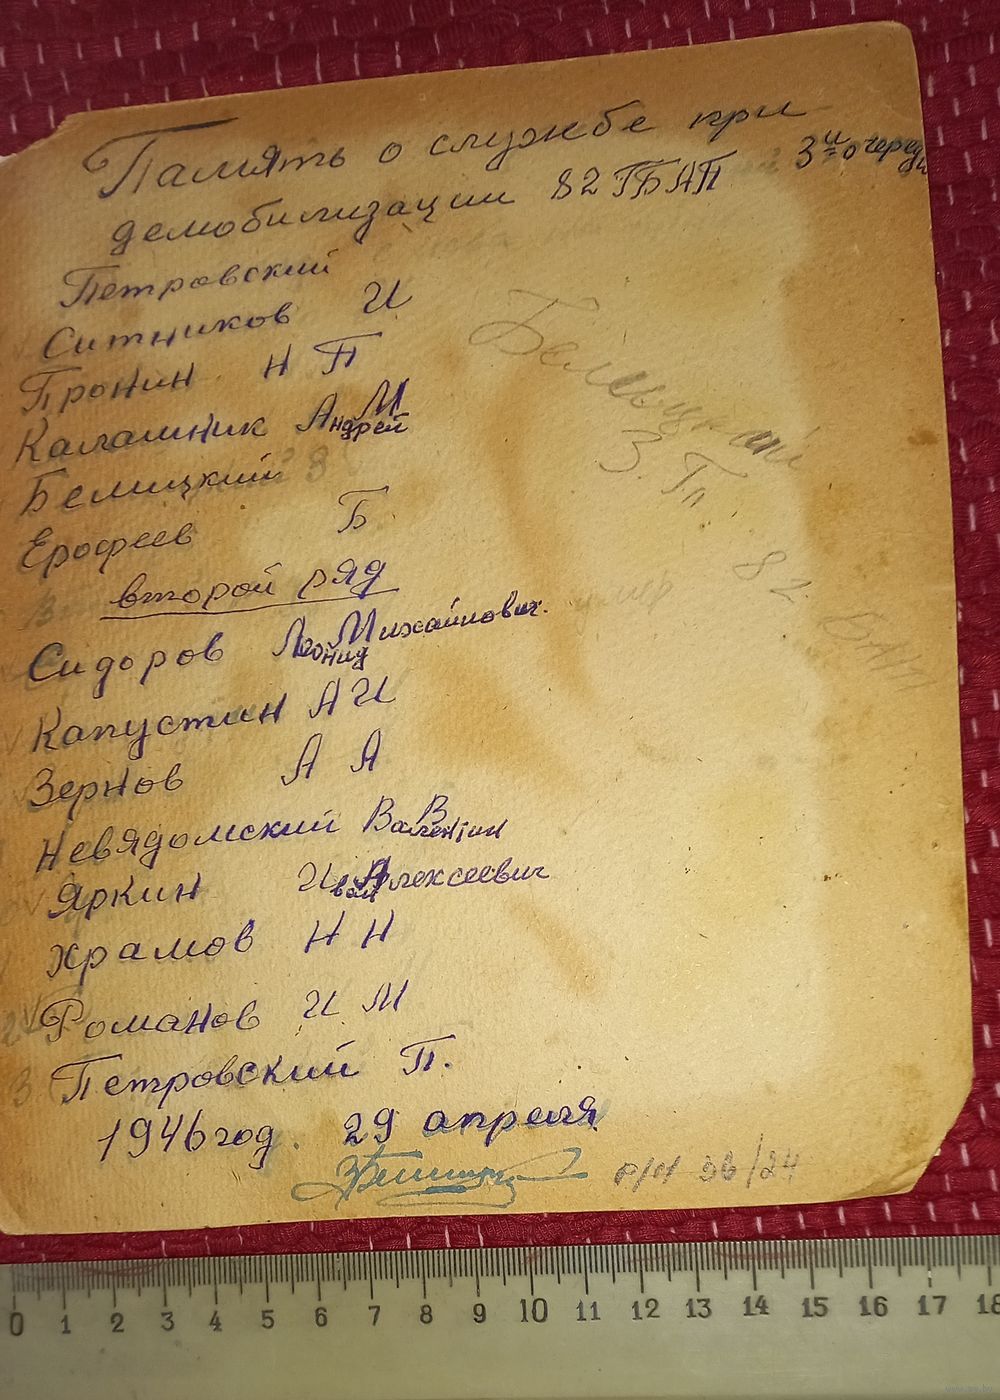 Память о службе при
демобилизации 82 ГБАП 3й очереди
Петровский
Ситников И
Пронин Н П
Калашник Андрей М
Белицкий З
Ерофеев Б
второй ряд
Сидоров Леонид Михайлович.
Капустин А И
Зернов А А
Невядомский Валентин В
Яркин Иван Алексеевич
Храмов Н Н
Романов И М
Петровский П.
1946 год. 29 апреля
Белицкий
З. Гп
82
0 1 2 3 4 5 6 7 8 9 10 11 12 13 14 15 16 17 18